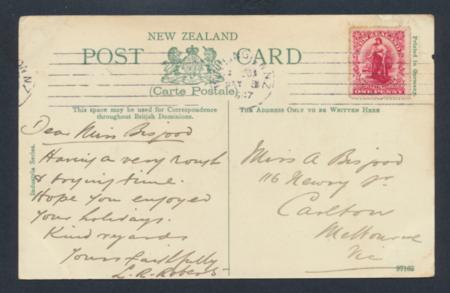 NEW ZEALAND
POST CARD
(Carte Postale)
This space may be used for Correspondence
throughout British Dominions.
THE ADDRESS ONLY TO BE WRITTEN HERE
Printed in Germany.
ONE PENNY
Industria Series.
Dear Miss Bisgood
Having a very rough
& trying time.
Hope you enjoyed
your holidays.
Kind regards
Yours faithfully
L. R. Roberts
Miss A Bisgood
116 Henry St
Carlton
Melbourne
Vic
97165